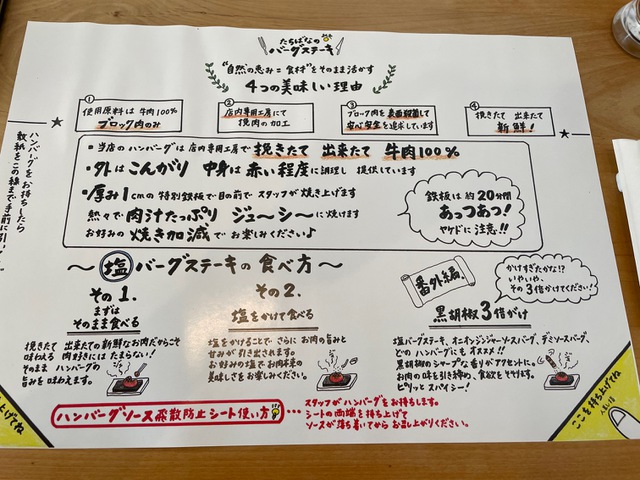 たちばなの
バーグステーキ
"自然の恵み＝食材"をそのまま活かす
4つの美味しい理由
①
使用原料は 牛肉100%
ブロック肉のみ
②
店内専用工房にて
挽肉の加工
③
ブロック肉を 表面殺菌して
安心安全を追求しています
④
挽きたて 出来たて
新鮮!
・当店の ハンバーグは 店内専用工房で 挽きたて 出来たて 牛肉100%
・外はこんがり 中身は 赤い程度に調理し 提供しています
・厚み1cmの 特別鉄板で目の前で スタッフが焼き上げます
熱々で 肉汁たっぷり ジュ〜シ〜に焼けます
お好みの 焼き加減で お楽しみください♪
鉄板は 約20分間
あっつあつ!
ヤケドに注意!!
〜塩バーグステーキの食べ方〜
その1.
まずは
そのまま食べる
挽きたて 出来たての新鮮なお肉だからこそ
味わえる 肉好きには たまらない!
そのまま ハンバーグの
旨みを味わえます。
その2.
塩をかけて食べる
塩をかけることで さらに お肉の旨みと
甘みが 引き出されます。
お好みの塩で お肉本来の
美味しさを お楽しみください。
番外編。
かけすぎたかな!?
いやいや、
その3倍かけてください!
黒胡椒3倍がけ
塩バーグステーキ、オニオンジンジャーソースバーグ、デミソースバーグ、
どの ハンバーグにも オススメ!!
黒胡椒の シャープな香りがアクセントに。
お肉の味を引き締め、食欲をそそります。
ピリッと スパイシー!
ハンバーグソース飛散防止シート使い方
・・・
スタッフが ハンバーグを お持ちします。
シートの両端を 持ち上げて
ソースが落ち着いてから お召し上がりください。
ハンバーグをお持ちしたら
敷紙をこの線まで手前に引い
上げてね
ここを持ち上げてね